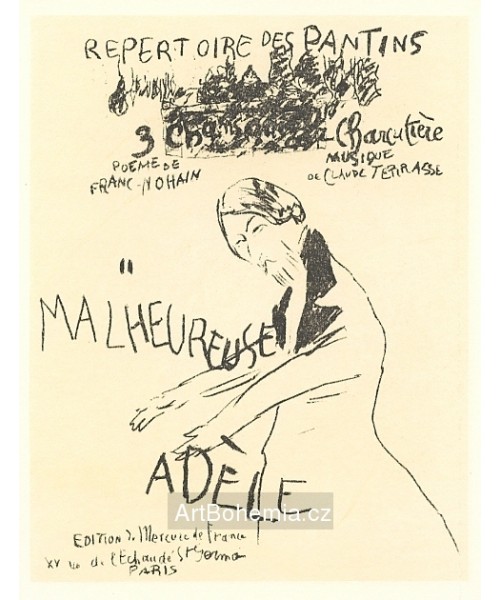 REPERTOIRE DES PANTINS
3 Chansons à la Charcutière
POEME DE
FRANC-NOHAIN
MUSIQUE
DE CLAUDE TERRASSE
"
MALHEUREUSE
ADÈLE
ArtBohemia.cz
EDITION d. Mercure de France
XV rue de l'Echaudé St Germa
PARIS